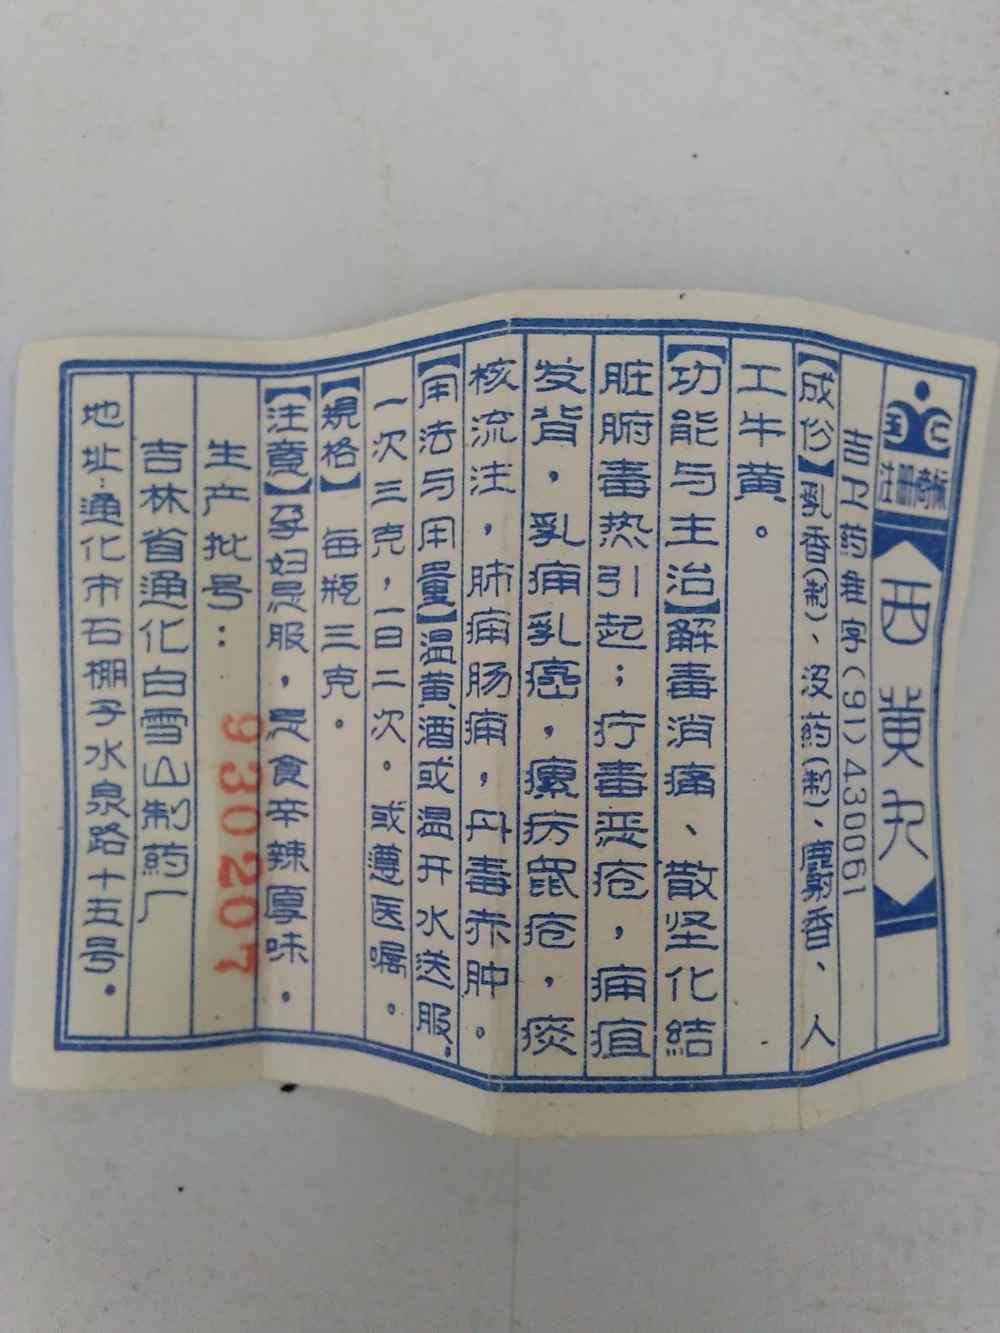 注册商标
西黄丸
吉卫药准字(91)430061
【成份】乳香(制)、没药(制)、麝香、人
工牛黄。
【功能与主治】解毒消痈、散坚化结
脏腑毒热引起;疔毒恶疮,痈疽
发背,乳痈乳癌,瘰疬鼠疮,痰
核流注,肺痈肠痈,丹毒赤肿。
【用法与用量】温黄酒或温开水送服,
一次三克,一日二次。或遵医嘱。
【规格】 每瓶三克。
【注意】孕妇忌服,忌食辛辣厚味。
生产批号: 930207
吉林省通化白雪山制药厂
地址:通化市石棚子水泉路十五号。